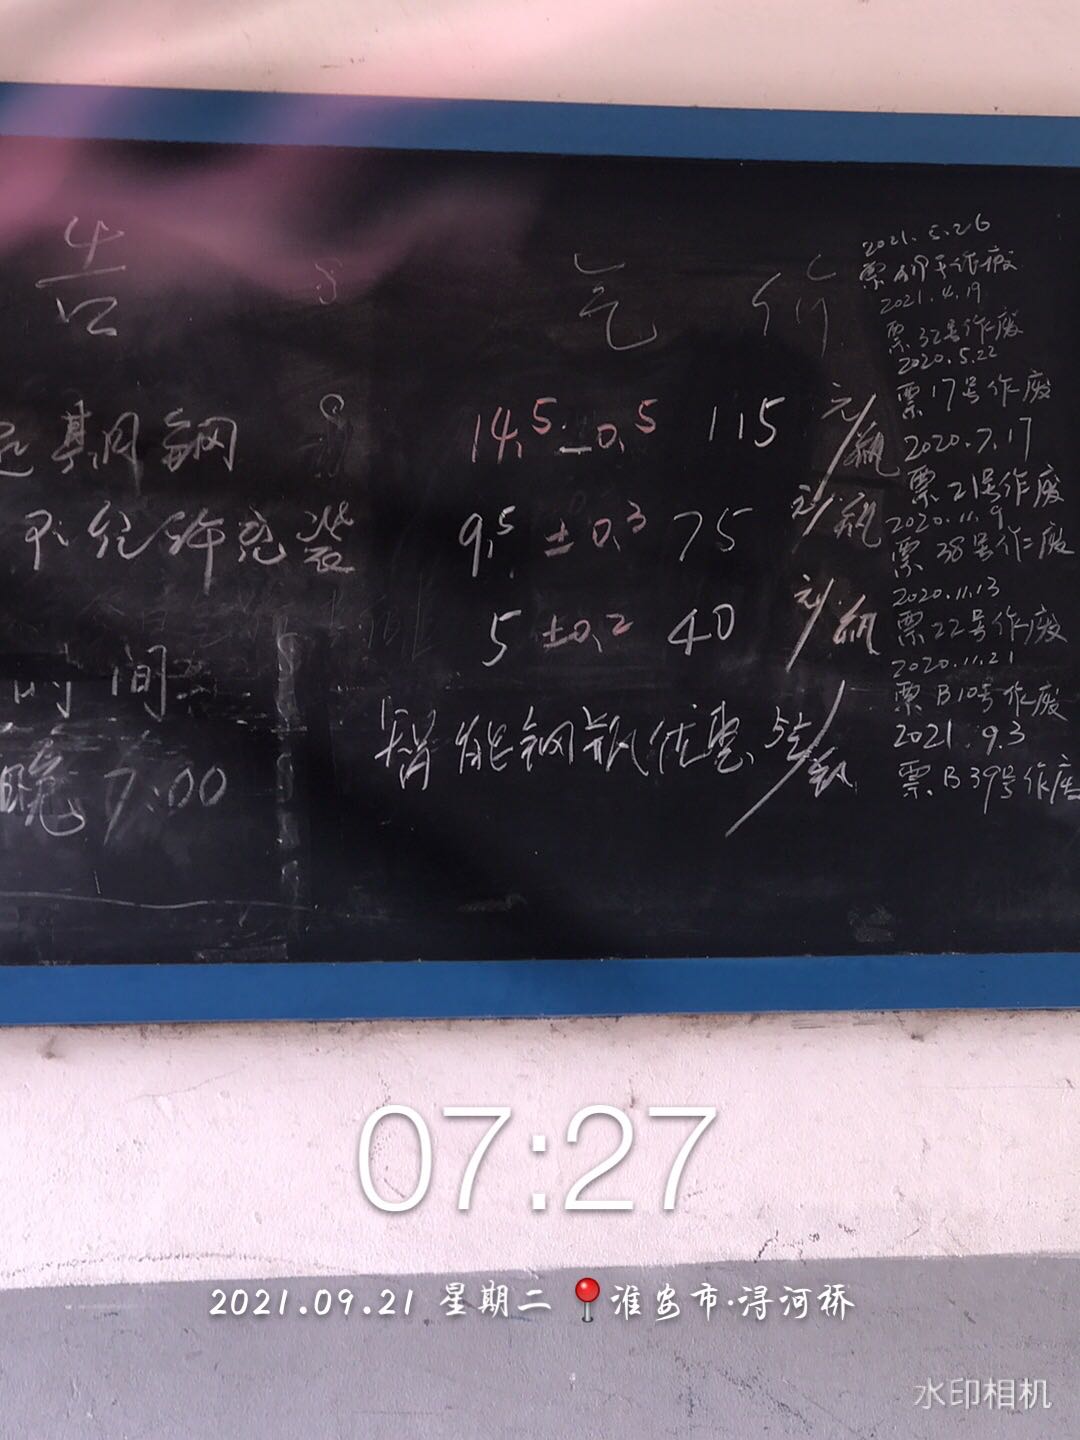 告
期钢
不允许充装
时间
晚7:00
气价
14.5±0.5 115元/瓶
9.5±0.3 75元/瓶
5±0.2 40元/瓶
智能钢瓶优惠5元/瓶
2021.5.26
号作废
2021.4.19
票32号作废
2020.5.22
票17号作废
2020.7.17
票21号作废
2020.11.9
票38号作废
2020.11.13
票22号作废
2020.11.21
票B10号作废
2021.9.3
票B39号作废
07:27
2021.09.21 星期二 淮安市·浔河桥
水印相机